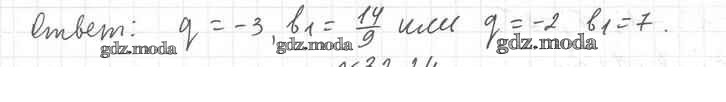 Ответ: q = -3, b₁ = 14/9 или q = -2 b₁ = 7.
gdz.moda gdz.moda gdz.moda